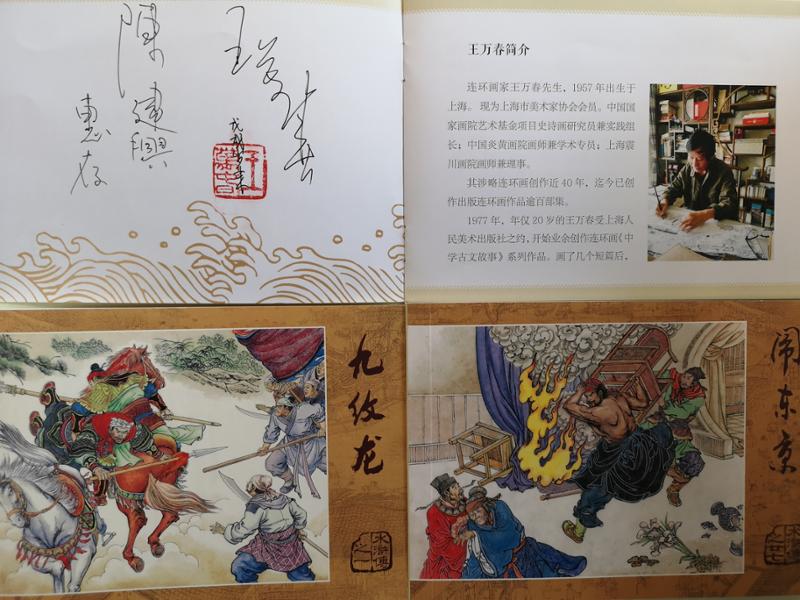 陳建興
惠存
王万春
王万春简介
连环画家王万春先生，1957年出生于
上海。现为上海市美术家协会会员。中国国
家画院艺术基金项目史诗画研究员兼实践组
长；中国炎黄画院画师兼学术专员；上海震
川画院画师兼理事。
其涉略连环画创作近40年，迄今已创
作出版连环画作品逾百部集。
1977年，年仅20岁的王万春受上海人
民美术出版社之约，开始业余创作连环画《中
学古文故事》系列作品。画了几个短篇后，
九纹龙
水浒传
之一
闹东京
水浒传